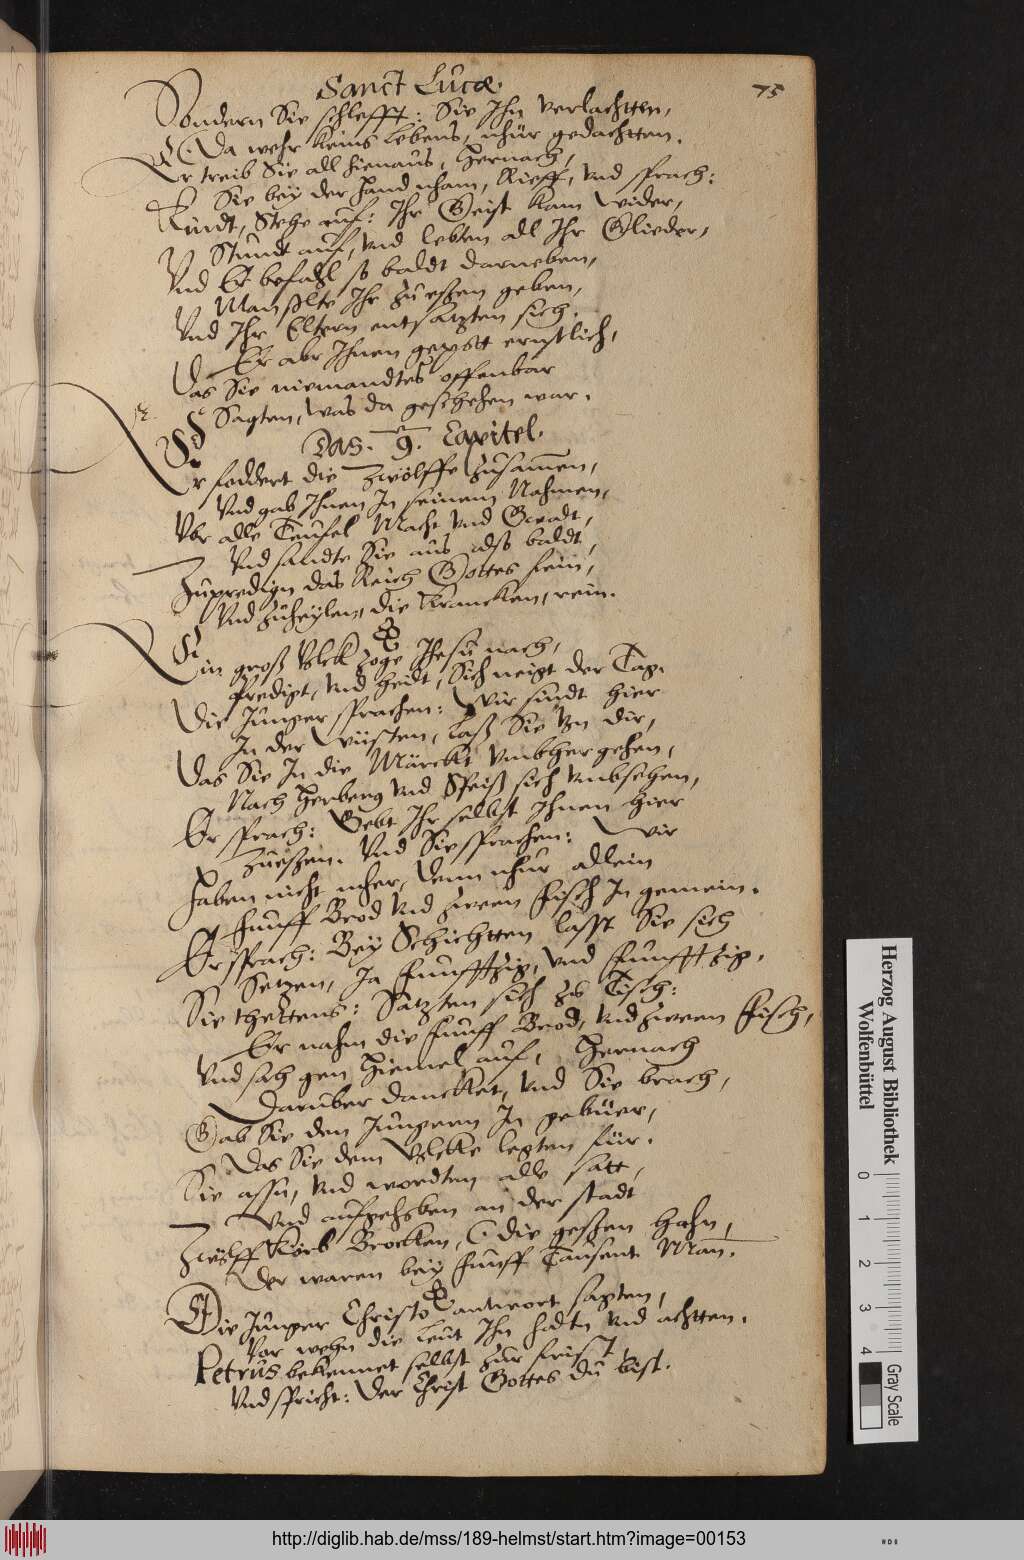 Sanct Lucæ.
75
Sondern Sie schlefft: Sie Ihn verlachtten,
Da wehr keins lebens, nhur gedachtten.
Er treib Sie all hienaus, Hernach,
Sie bey der Hand nham, Rieff, vnd sprach:
Kindt, Stehe auf: Ihr Geist kam wider,
Stundt auf, vnd lebten all Ihr Glieder,
Vnd Er befahl so baldt darneben,
Man sollte Ihr zu eßen geben,
Vnd Ihr Eltern entsatzten sich.
Er abr Ihnen gepott ernstlich,
Das Sie niemandtes offenbar
Sagten, was da geschehen war.
Das. 9. Capitel.
Er foddert die Zwölffe zusamen,
Vnd gab Ihnen In seinem Nahmen,
Vbr alle Teufel Macht vnd Gwalt,
Vnd sandte Sie aus also baldt,
Zupredign das Reich Gottes fein,
Vnd zuheylen, die Krancken, rein.
Ein groß Volck zoge Jhesu nach,
Predigt, vnd heilt, Sich neigt der Tag.
Die Junger sprachen: Wir sindt hier
In der Wüsten, laß Sie von dir,
Das Sie In die Märckt vmbher gehen,
Nach Herberg vnd Speiß sich vmbsehen,
Er sprach: Gebt Ihr selbst Ihnen hier
Zu eßen. Vnd Sie sprachen: Wir
Haben nicht mher, denn nhur allein
Funff Brod vnd zween Fisch In gemein.
Er sprach: Bey Schichtten lasst Sie sich
Setzen, Ja Funfftzig, vnd Funfftzig.
Sie thettens: Satzten sich zu Tisch:
Er nahm die funff Brod, vnd zween Fisch,
Vnd sah gen Hiemel auf, Hernach
Daruber dancket, vnd Sie brach,
Gab Sie den Jungern In gebüer,
Das Sie dem Volcke legten für.
Sie assn, vnd wordten alle satt,
Vnd aufgehoben an der stadt
Zwölff Körb Brocken, die geßen habn,
Der waren bey funff Tausent Man.
Die Junger Christo antwort sagten,
Vor wehn die leut Ihn haltn vnd achtten.
Petrus bekennet selbst zur frist
Vnd spricht: Der Christ Gottes du bist.
Herzog August Bibliothek
Wolfenbüttel
0 1 2 3 4
Gray Scale
http://diglib.hab.de/mss/189-helmst/start.htm?image=00153